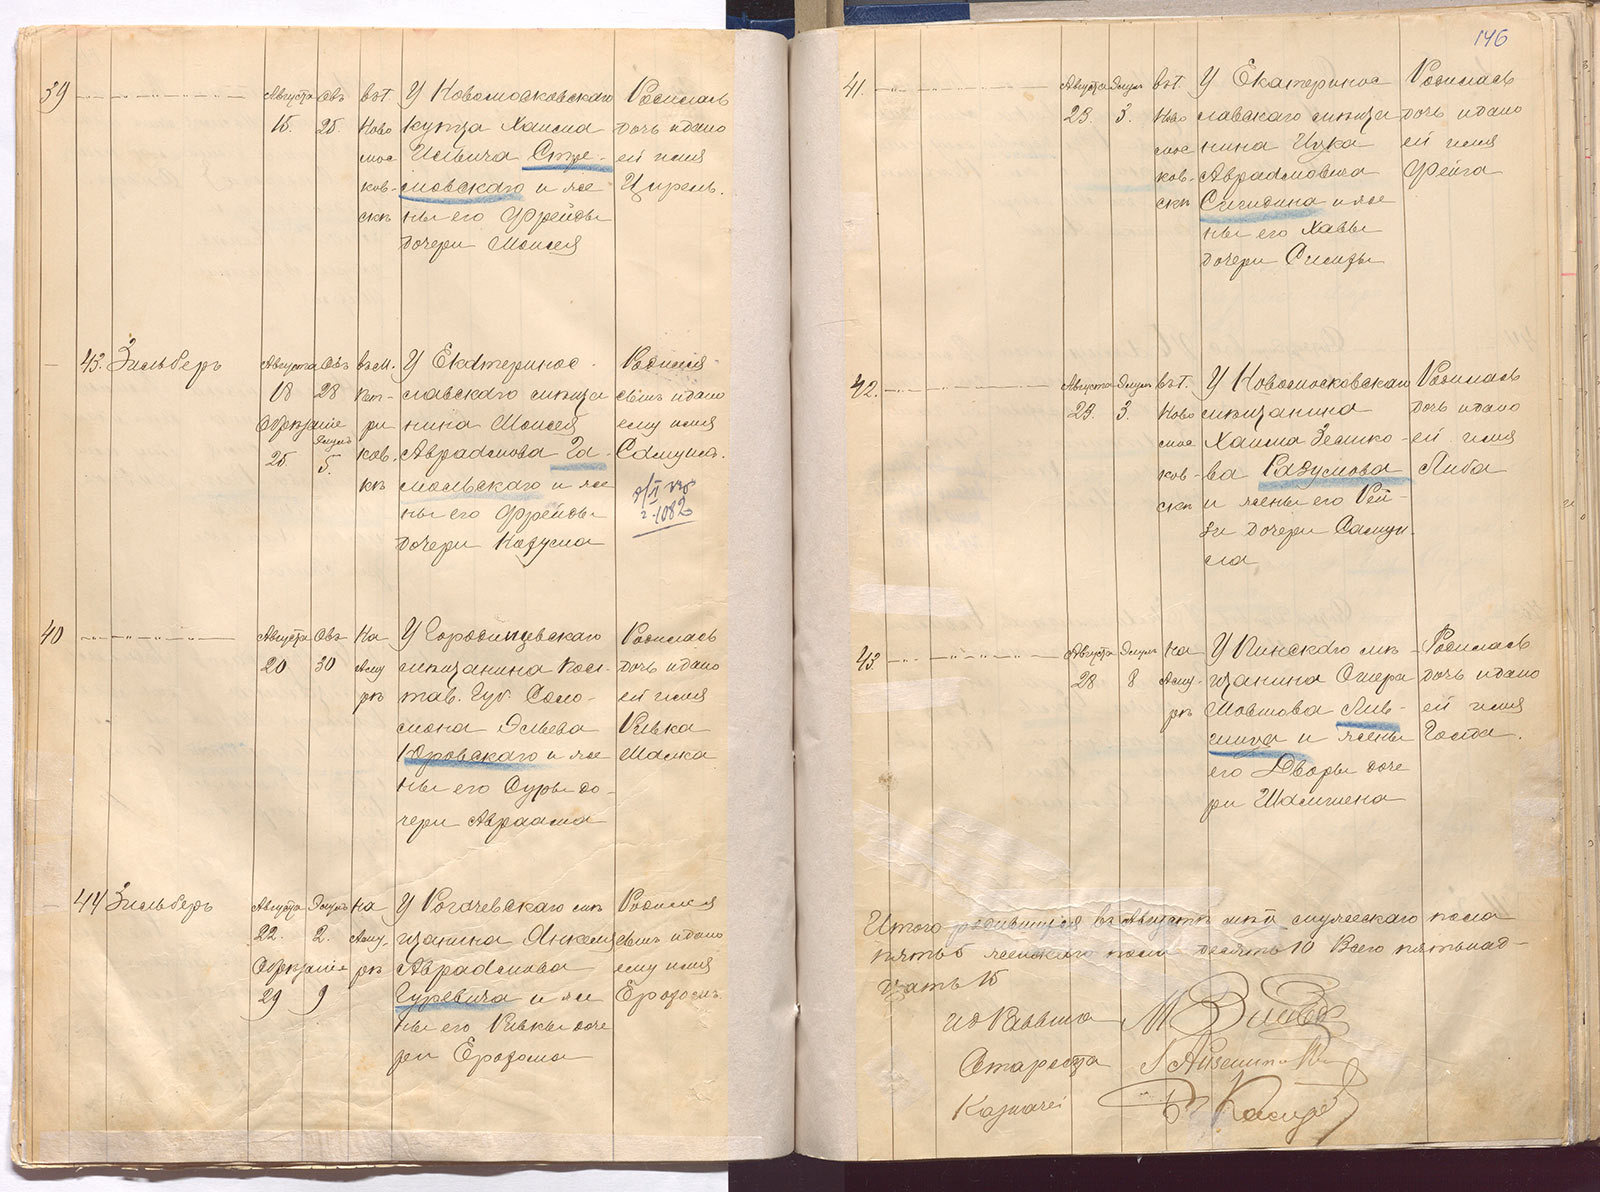 146
39
Августа Авъ
15. 25.
въ г.
Ново
мос
ков-
скѣ
У Новомосковскаго
купца Хаима
Стре-
мовскаго и же
ны его Фрейды
дочери Моисея
Родилась
дочь и дано
ей имя
Цирель.
43. Зильберъ
Августа Авъ
18 28
Обрѣзаніе
Элулъ
25 5.
ри
ков-
кѣ
У Екатеринос-
лавскаго мѣща
нина Моисея
Абрамова Га-
мольскаго и же
ны его Фрейды
дочери
Родился
сынъ и дано
ему имя
Самуил.
1082
40
Августа Авъ
20 30
На
Аму
рѣ
У Городищевскаго
мѣщанина Пол-
тав. Губ. Соло-
мона Эльева
Юровскаго и же
ны его Суры до-
чери Авраама
Родилась
дочь и дано
ей имя
Ривка
Малка
44 Зильберъ
Августа Элулъ
22. 2.
Обрѣзаніе
29 9
на
Аму-
рѣ
У Рогачевскаго мѣ
щанина Янкеля
Абрамова
Гуревича и же
ны его Ривки доче
ри
Родился
сынъ и дано
ему имя
41.
Августа Элулъ
23. 3.
въ г.
Ново
мос
ков-
скѣ
У Екатеринос
лавскаго мѣща
нина Ицка
Абрамовича
и же
ны его Хавы
дочери Симхи
Родилась
дочь и дано
ей имя
Фейга
42.
Августа Элулъ
23. 3.
въ г.
Ново
мос
ков-
скѣ
У Новомосковскаго
мѣщанина
Хаима Зелико-
ва Разумова
и жены его Рей-
зи дочери Самуи
ла
Родилась
дочь и дано
ей имя
Либа
43
Августа Элулъ
28 8
на
Аму-
рѣ
У Пинскаго мѣ-
щанина Ошера
Мовшова Лив-
шица и жены
его Дворы доче
ри
Родилась
дочь и дано
ей имя
Голда.
Итого родившихся въ Августѣ м-цѣ мужескаго пола
пять 5 женскаго пола десять 10 Всего пятьнад-
цать 15
И д Раввина
Староста
Казначей